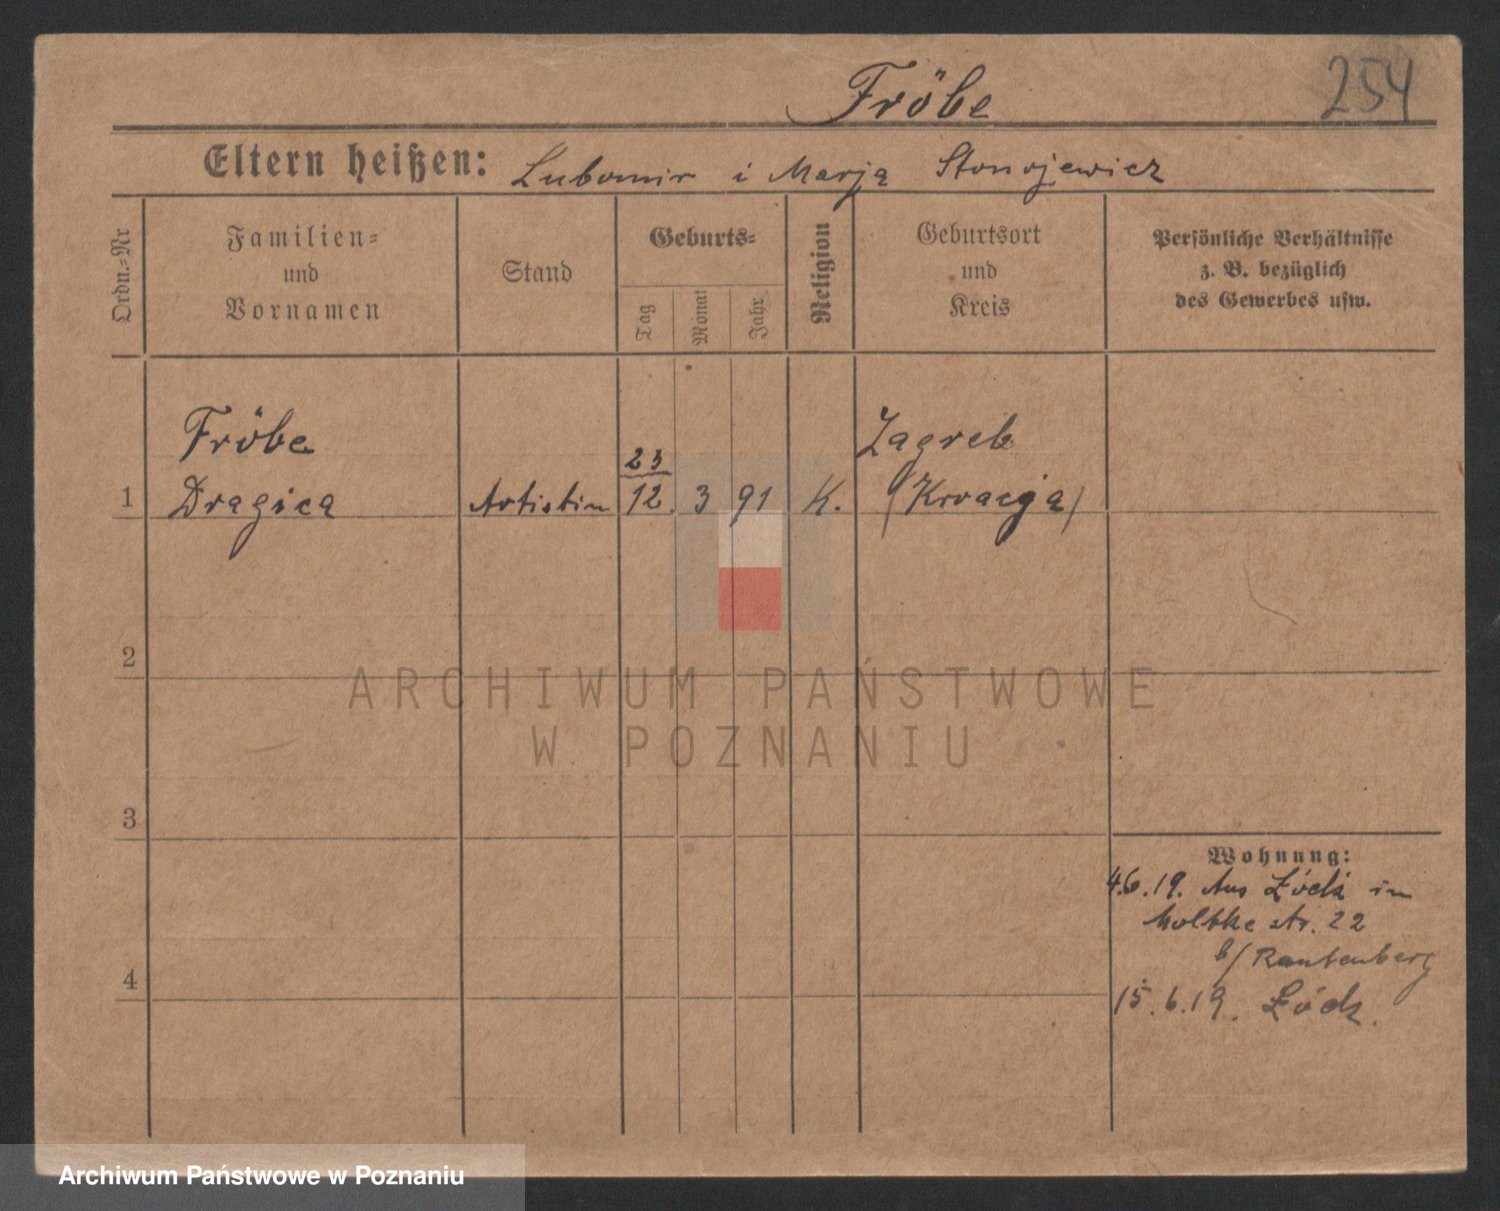 Fröbe 254
Eltern heißen: Lubomir i Marja Stonojewicz
Ordn.-Nr
Familien-
und
Vornamen
Stand
Geburts-
Tag
Monat
Jahr
Religion
Geburtsort
und
Kreis
Persönliche Verhältnisse
z. B. bezüglich
des Gewerbes usw.
Fröbe
1 Dragica Artistin 23/12. 3 91 K.
Zagreb
(Kroacja)
2
3
4
ARCHIWUM PAŃSTWOWE
W POZNANIU
Wohnung:
4.6.19. Aus Łódź in
Moltke str. 22
b/ Rautenberg
15.6.19. Łódz.
Archiwum Państwowe w Poznaniu